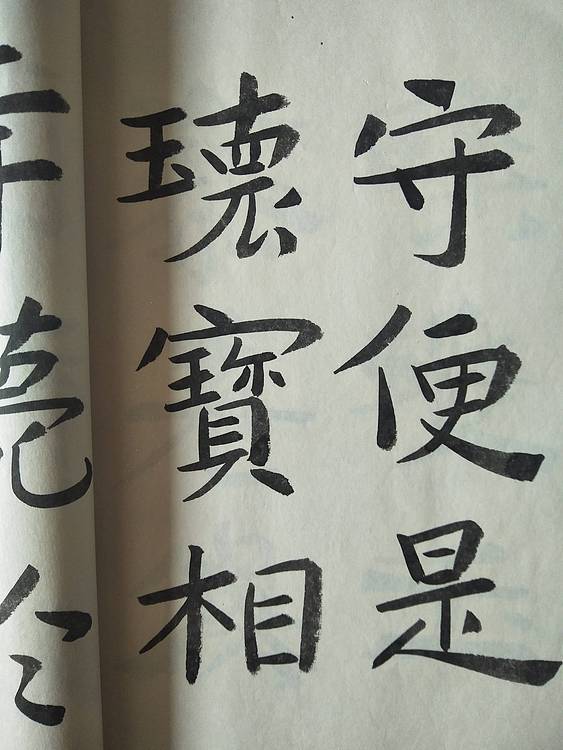 守便是
瓌寶相